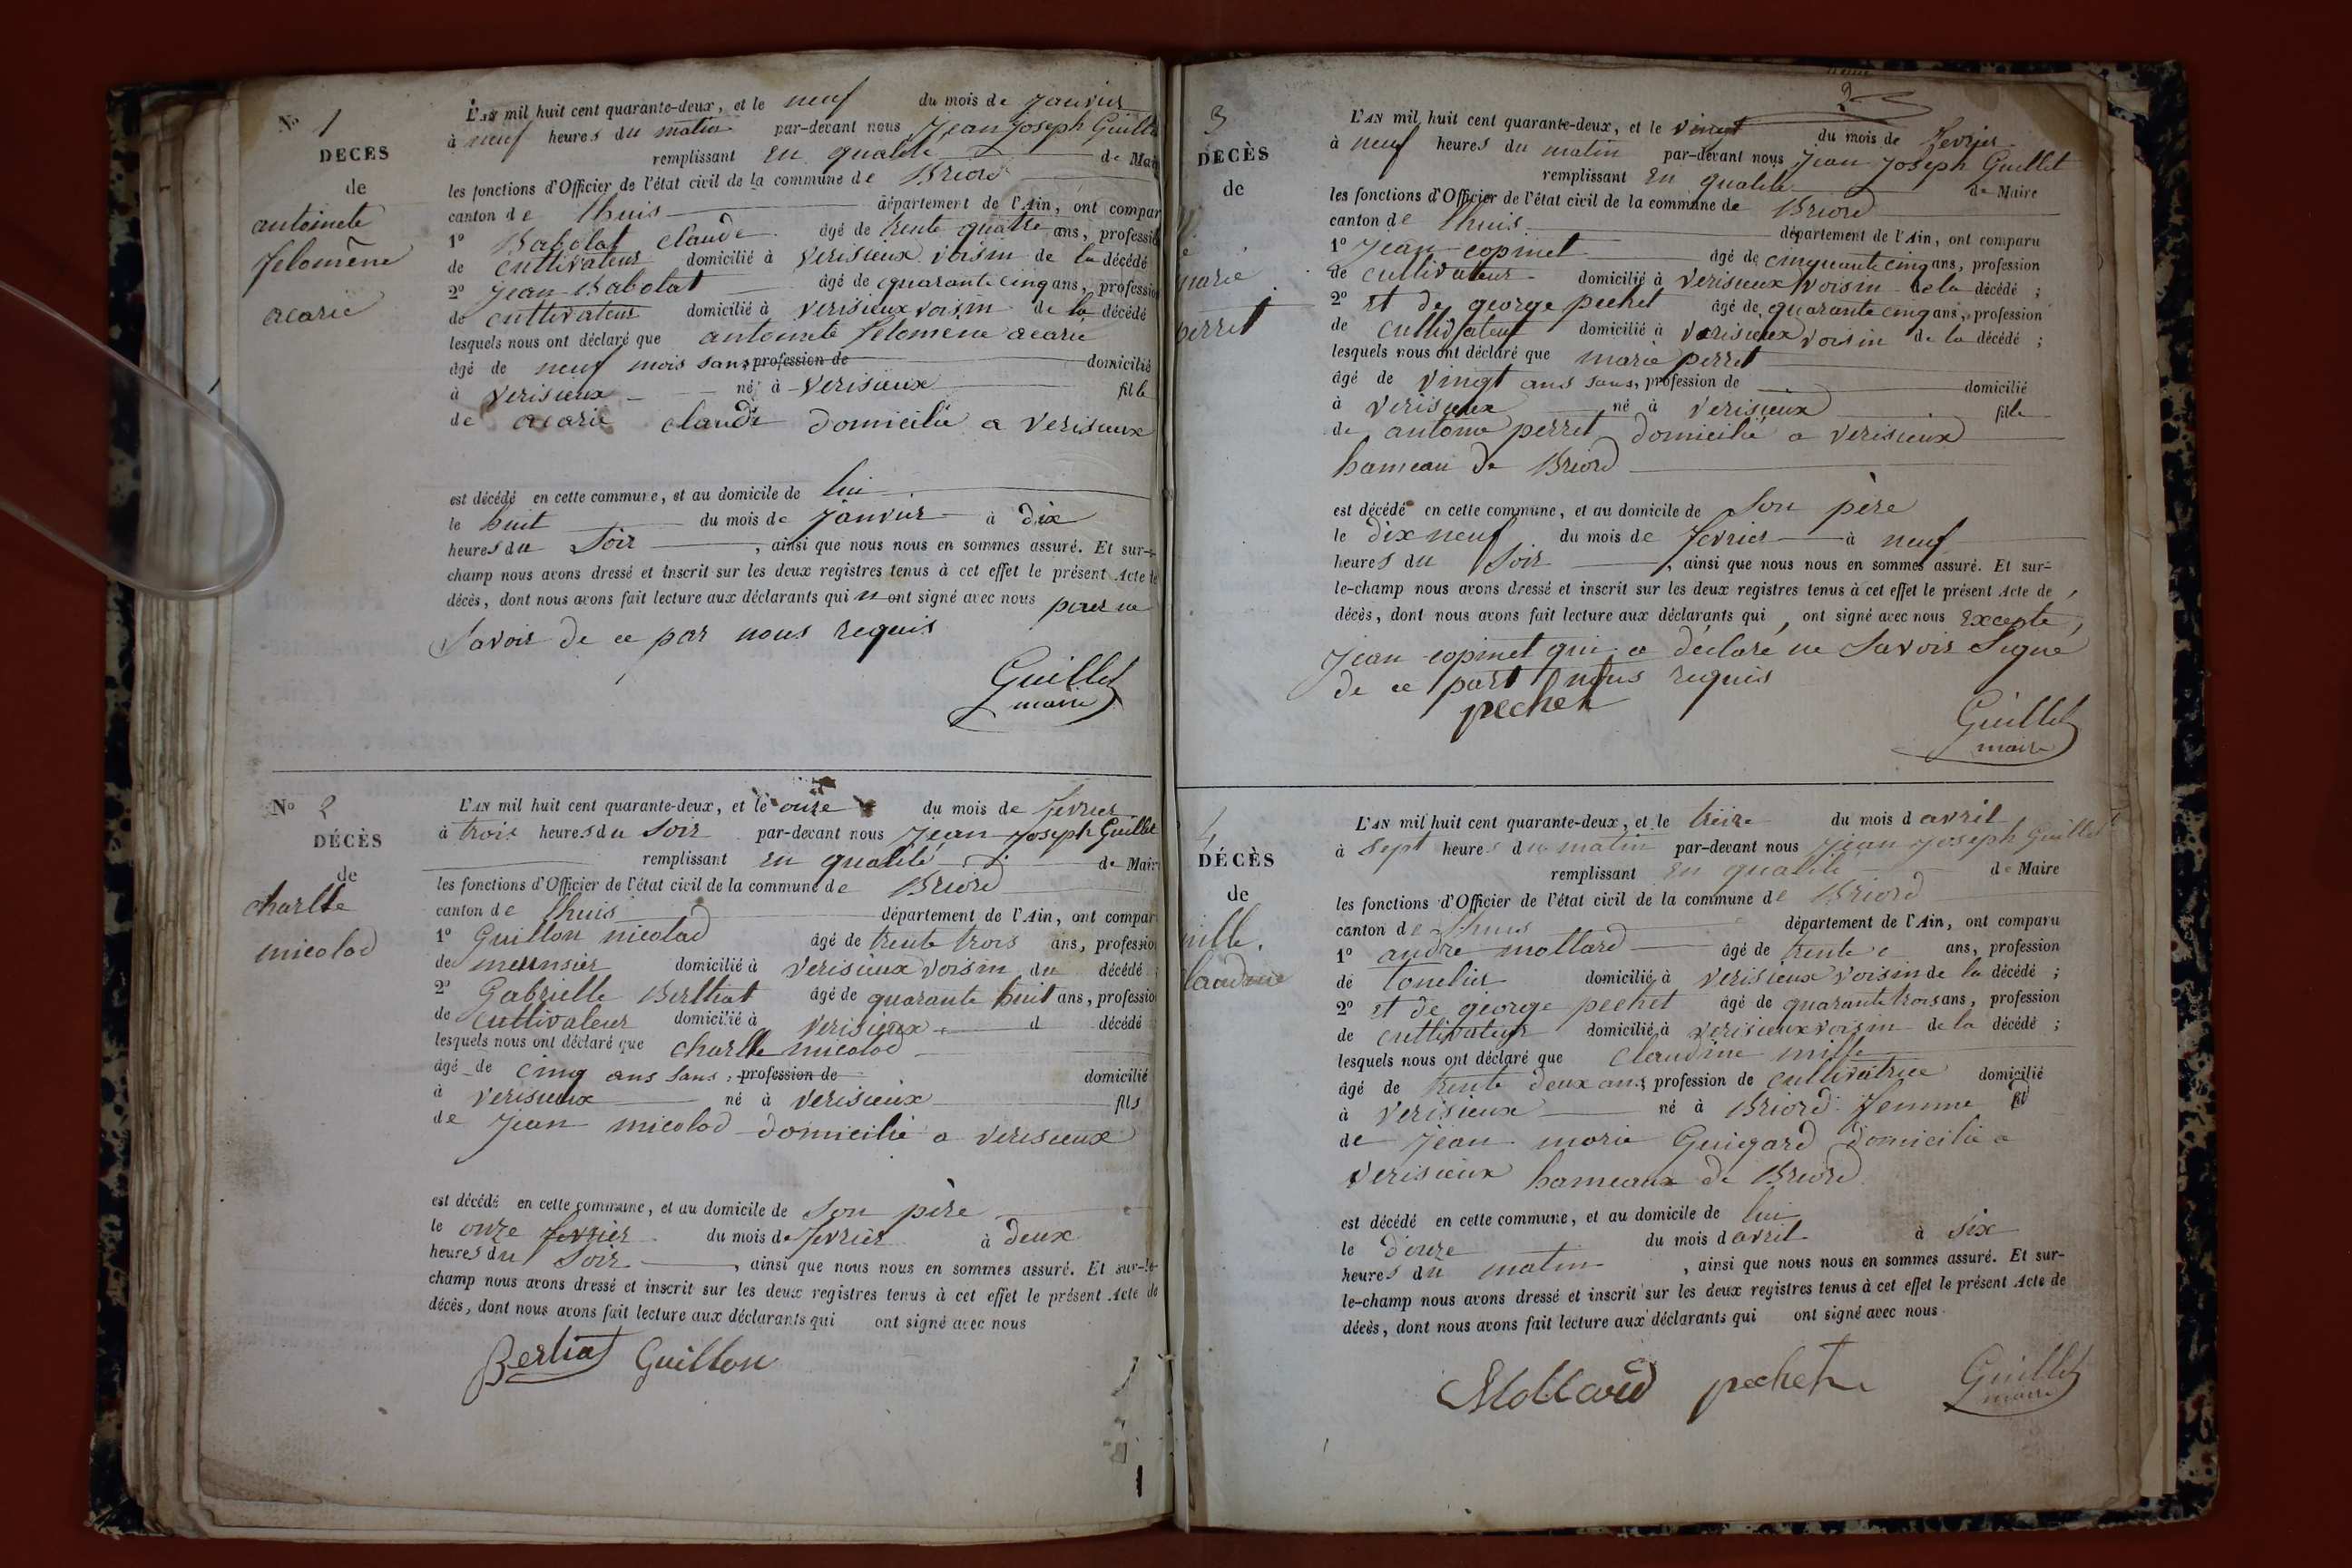 No 1
DECES
de
antoinete
felomène
acarie
L'AN mil huit cent quarante-deux, et le neuf du mois de janvier
à neuf heures du matin par-devant nous Jean joseph Guille
remplissant En qualité de Mai
les fonctions d'Officier de l'état civil de la commune de Briord
canton de lhuis département de l'Ain, ont compar
1o Babolat claude âgé de trente quattre ans, professi
de cultivateur domicilié à verisieux voisin de la décédé
2o Jean Babolat âgé de quarante cinq ans, professio
de cultivateur domicilié à verisieux voisin de la décédé
lesquels nous ont déclaré que antoinete felomene acarie
âgé de neuf mois sans profession de domicilié
à verisieux né à verisieux fille
de acarie claude domicilié a verisieux
est décédé en cette commune, et au domicile de lui
le huit du mois de janvier à dix
heures du soir , ainsi que nous nous en sommes assuré. Et sur-
champ nous avons dressé et inscrit sur les deux registres tenus à cet effet le présent Acte de
décès, dont nous avons fait lecture aux déclarants qui n ont signé avec nous pour ne
Savoir de ce par nous requis
Guillet
maire
No 2
DÉCÈS
de
charlle
micolod
L'AN mil huit cent quarante-deux, et le onze du mois de fevrier
à trois heures du soir par-devant nous Jean Joseph Guillet
remplissant En qualité de Mair
les fonctions d'Officier de l'état civil de la commune de Briord
canton de lhuis département de l'Ain, ont compar
1o Guillon nicolad âgé de trente trois ans, professio
de meunsier domicilié à verisieux voisin du décédé
2o Gabrielle Berlliat âgé de quarante huit ans, professio
de cultivateur domicilié à verisieux d décédé
lesquels nous ont déclaré que charlle micolod
âgé de cinq ans sans profession de domicilié
à verisieux né à verisieux fils
de Jean micolod domicilié a verisieux
est décédé en cette commune, et au domicile de son père
le onze fevrier du mois de fevrier à deux
heures du soir , ainsi que nous nous en sommes assuré. Et sur-le-
champ nous avons dressé et inscrit sur les deux registres tenus à cet effet le présent Acte de
décès, dont nous avons fait lecture aux déclarants qui ont signé avec nous
Berliat Guillon
2
3
DÉCÈS
de
marie
perret
L'AN mil huit cent quarante-deux, et le vingt du mois de fevrier
à neuf heures du matin par-devant nous Jean Joseph Guillet
remplissant En qualité de Maire
les fonctions d'Officier de l'état civil de la commune de Briord
canton de lhuis département de l'Ain, ont comparu
1o Jean copinet âgé de cinquante cinq ans, profession
de cultivateur domicilié à verisieux voisin de la décédé ;
2o et de george pechet âgé de quarante cinq ans, profession
de cultivateur domicilié à verisieux voisin de la décédé ;
lesquels nous ont déclaré que marie perret
âgé de vingt ans sans, profession de domicilié
à verisieux né à verisieux fille
de antoine perret domicilié a verisieux
hameau de Briord
est décédé en cette commune, et au domicile de son père
le dix neuf du mois de fevrier à neuf
heures du soir , ainsi que nous nous en sommes assuré. Et sur-
le-champ nous avons dressé et inscrit sur les deux registres tenus à cet effet le présent Acte de
décès, dont nous avons fait lecture aux déclarants qui , ont signé avec nous Excepte,
Jean copinet qui a déclaré ne Savoir Signé
de ce part nous requis
pechet
Guillet
maire
4
DÉCÈS
de
mille.
claudine
L'AN mil huit cent quarante-deux, et le treize du mois d avril
à sept heures du matin par-devant nous Jean Joseph Guillet
remplissant En qualité de Maire
les fonctions d'Officier de l'état civil de la commune de Briord
canton de lhuis département de l'Ain, ont comparu
1o andre mollard âgé de trente ans, profession
de tonelier domicilié à verisieux voisin de la décédé ;
2o et de george pechet âgé de quarante trois ans, profession
de cultivateur domicilié à verisieux voisin de la décédé ;
lesquels nous ont déclaré que claudine mille
âgé de trente deux ans, profession de cultivatrice domicilié
à verisieux né à Briord femme fil
de Jean marie Guigard domicilié a
verisieux hameaux de Briord
est décédé en cette commune, et au domicile de lui
le douze du mois d avril à six
heures du matin , ainsi que nous nous en sommes assuré. Et sur-
le-champ nous avons dressé et inscrit sur les deux registres tenus à cet effet le présent Acte de
décès, dont nous avons fait lecture aux déclarants qui ont signé avec nous
Mollard pechet Guillet
maire